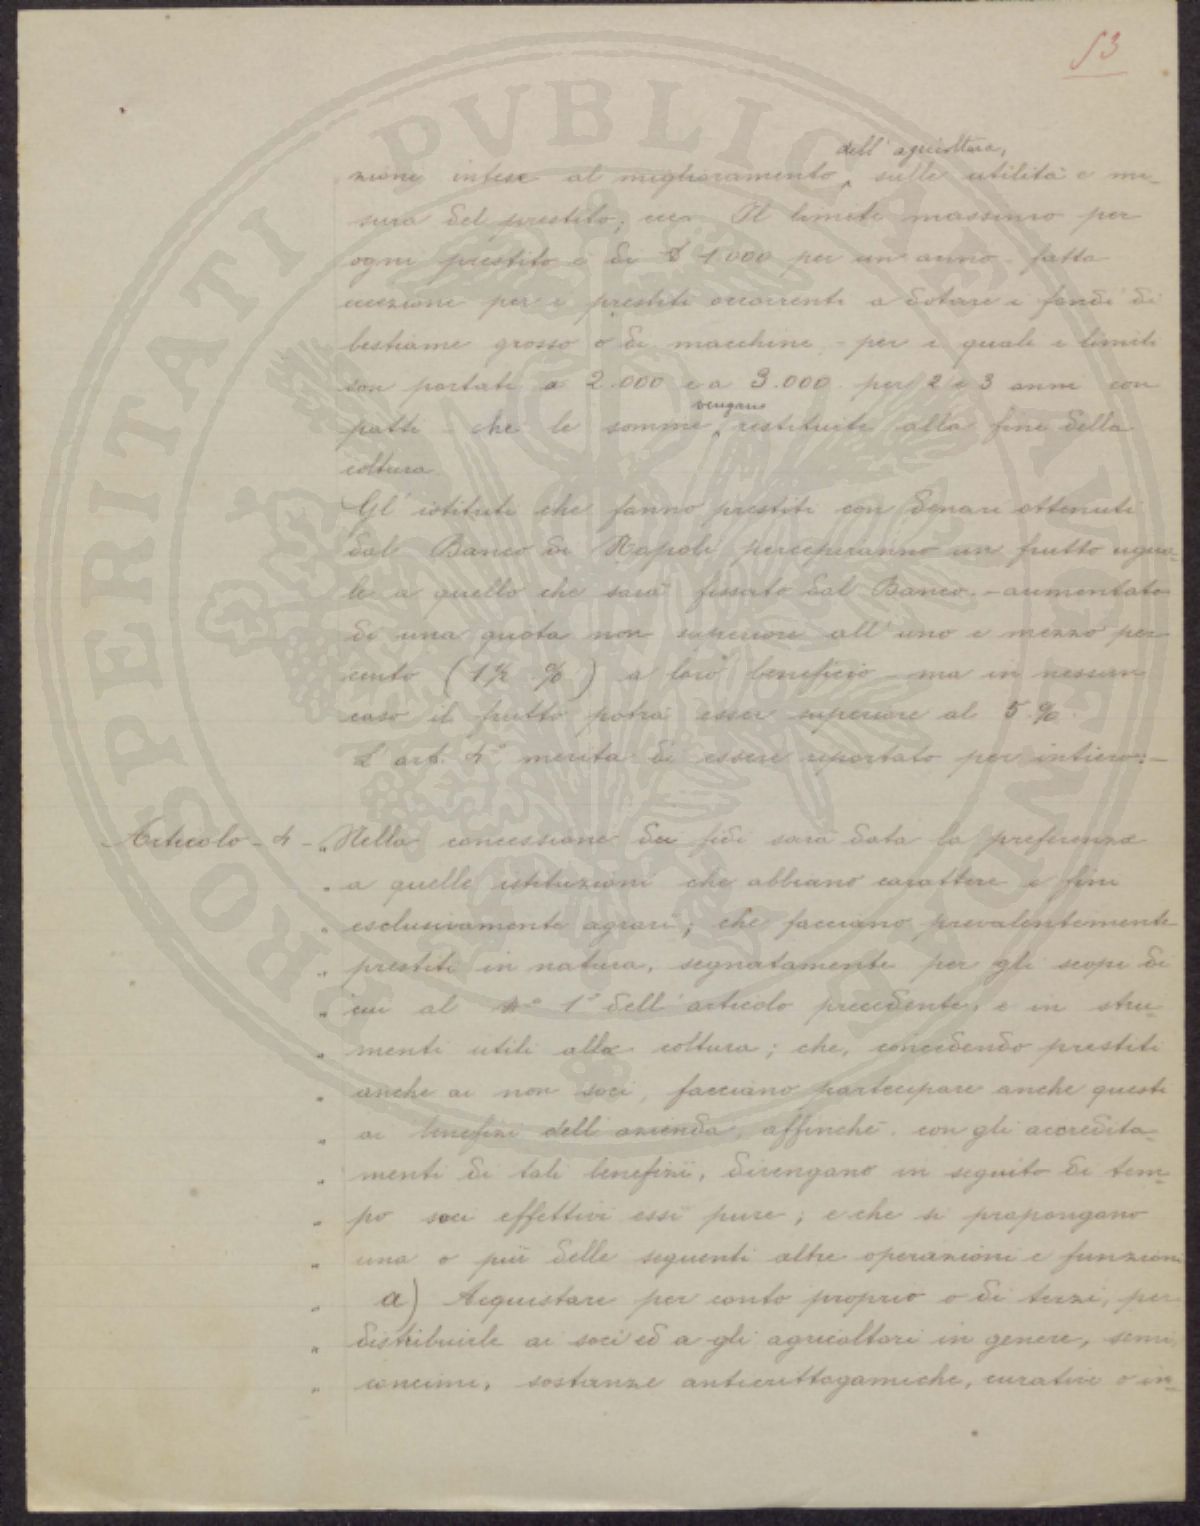 53
dell'agricoltura,
zioni intese al miglioramento, sulle utilità e mi-
sura del prestito; ecc. Il limite massimo per
ogni prestito è di £ 1000 per un anno - fatta
eccezione per i prestiti occorrenti a dotare i fondi di
bestiame grosso o di macchine - per i quali i limiti
son portati a 2.000 e a 3.000 per 2 e 3 anni con
vengano
patti - che le somme restituite alla fine della
coltura.
Gl'istituti che fanno prestiti con denari ottenuti
dal Banco di Napoli percepiranno un frutto ugua-
le a quello che sarà fissato dal Banco. - aumentato
di una quota non superiore all'uno e mezzo per
cento (1½ %) a loro beneficio - ma in nessun
caso il frutto potrà esser superiore al 5 %.
L'art. 4° merita di essere riportato per intiero: -
Articolo - 4 - „ Nella concessione dei fidi sarà data la preferenza
„ a quelle istituzioni che abbiano carattere e fini
„ esclusivamente agrari; che facciano prevalentemente
„ prestiti in natura, segnatamente per gli scopi di
„ cui al n° 1° dell'articolo precedente, e in stru-
„ menti utili alla coltura; che, concedendo prestiti
„ anche ai non soci, facciano partecipare anche questi
„ ai benefizi dell'azienda, affinchè con gli accredita-
„ menti di tali benefizii, divengano in seguito di tem-
„ po soci effettivi essi pure; e che si propongano
„ una o più delle seguenti altre operazioni e funzioni
„ a) Acquistare per conto proprio o di terzi, per
„ distribuirle ai soci ed a gli agricoltori in genere, semi
„ concimi, sostanze anticrittogamiche, curative o in-
PROSPERITATI PVBLICAE AVGENDAE